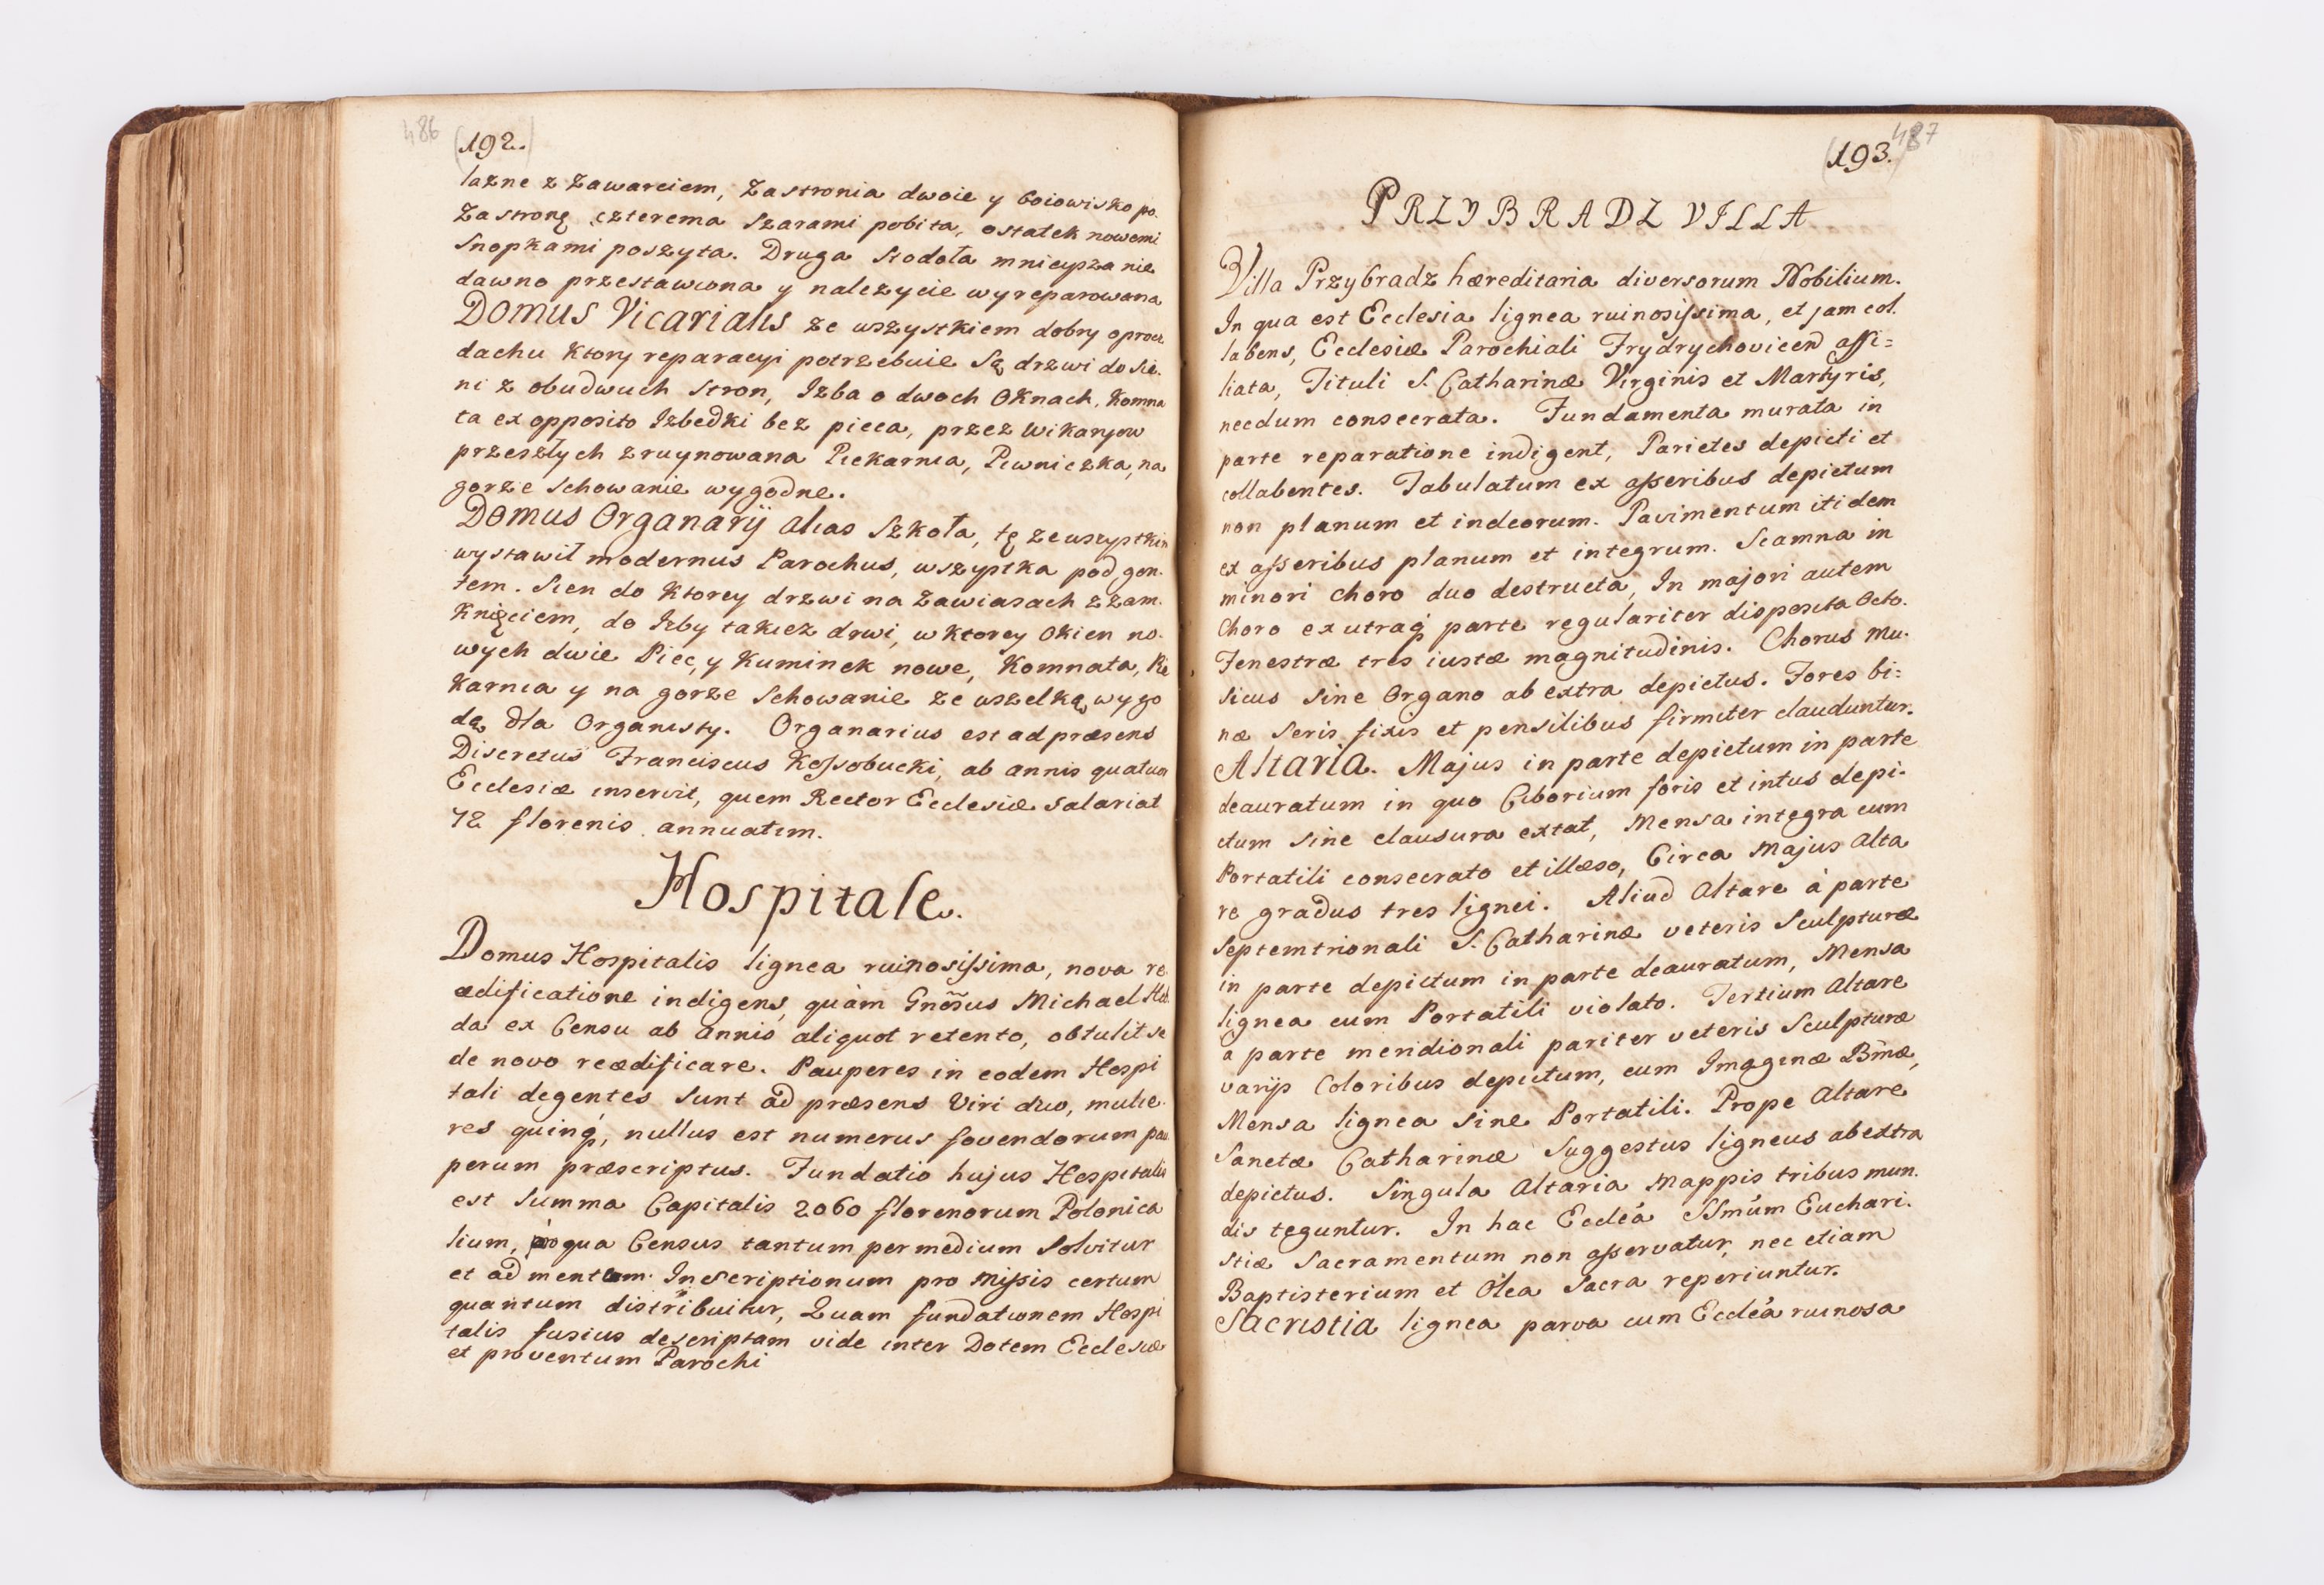 486
(192.)
lazne z Zawarciem, Zastronia dwoie y boiowisko po.
Zastronę czterema Szarami pobita, ostatek nowemi
Snopkami poszyta. Druga Stodoła mnieysza nie
dawno przestawiona y nalezycie wyreparowana
Domus Vicarialis ze wszystkiem dobry oprocz
dachu Ktory reparacyi potrzebuie Są drzwi do Sie.
ni z obudwuch Stron, Izba o dwoch Oknach, Komna
ta ex opposito Izbedki bez pieca, przez Wikaryow
przeszłych zruynowana Piekarnia, Piwniczka, na
gorze Schowanie wygodne.
Domus Organarij alias Szkoła, tę ze wszystkim
wystawił modernus Parochus, wszystka pod gon.
tem. Sien do Ktorey drzwi na Zawiasach z zam.
Knięciem, do Izby takiez drwi, w Ktorey Okien no.
wych dwie Piec, y Kuminek nowe, Komnata, Pie
Karnia y na gorze Schowanie ze wszelką wygo
dą dla Organisty. Organarius est ad præsens
Discretus Franciscus Kossobucki, ab annis quatuor
Ecclesiæ inservit, quem Rector Ecclesiæ Salariat
72 florenis annuatim.
Hospitale.
Domus Hospitalis lignea ruinosissima, nova re
ædificatione indigens, quàm Gnosus Michael
da ex Censu ab annis aliquot retento, obtulit se
de novo reædificare. Pauperes in eodem Hospi
tali degentes Sunt ad præsens Viri duo, mulie.
res quinq́, nullus est numerus fovendorum pau
perum præscriptus. Fundatio hujus Hospitalis
est Summa Capitalis 2060 florenorum Polonica
lium, qua Census tantum per medium Solvitur
et ad mentem Inscriptionum pro Missis certum
quantum distribuitur, Quam fundationem Hospi
talis fusius descriptam vide inter Dotem Ecclesiæ
et proventum Parochi
487
(193.)
PRZYBRADZ VILLA
Villa Przybradz hæreditaria diversorum Nobilium.
In qua est Ecclesia lignea ruinosissima, et jam col.
labens, Ecclesiæ Parochiali Frydrychovicen affi=
liata, Tituli S. Catharinæ Virginis et Martyris,
necdum consecrata. Fundamenta murata in
parte reparatione indigent, Parietes depicti et
collabentes. Tabulatum ex asseribus depictum
non planum et indecorum. Pavimentum itidem
ex asseribus planum et integrum. Scamna in
minori choro duo destructa, In majori autem
Choro ex utraq́ parte regulariter disposita Octo.
Fenestræ tres iustæ magnitudinis. Chorus Mu.
sicus Sine Organo ab extra depictus. Fores bi=
næ Seris fixis et pensilibus firmiter clauduntur.
Altaria. Majus in parte depictum in parte
deauratum in quo Ciborium foris et intus depi.
ctum Sine clausura extat, Mensa integra cum
Portatili consecrato et illæso, Circa Majus Alta
re gradus tres lignei. Aliud Altare à parte
Septemtrionali S. Catharinæ veteris Sculpturæ
in parte depictum in parte deauratum, Mensa
lignea cum Portatili violato. Tertium Altare
a parte meridionali pariter veteris Sculpturæ
varijs Coloribus depictum, cum Imaginæ Bmæ,
Mensa lignea Sine Portatili. Prope Altare
Sanctæ Catharinæ Suggestus ligneus ab extra
depictus. Singula Altaria Mappis tribus mun.
dis teguntur. In hac Eccleá SSmúm Euchari.
stiæ Sacramentum non asservatur, nec etiam
Baptisterium et Olea Sacra reperiuntur.
Sacristia lignea parva cum Eccleá ruinosa